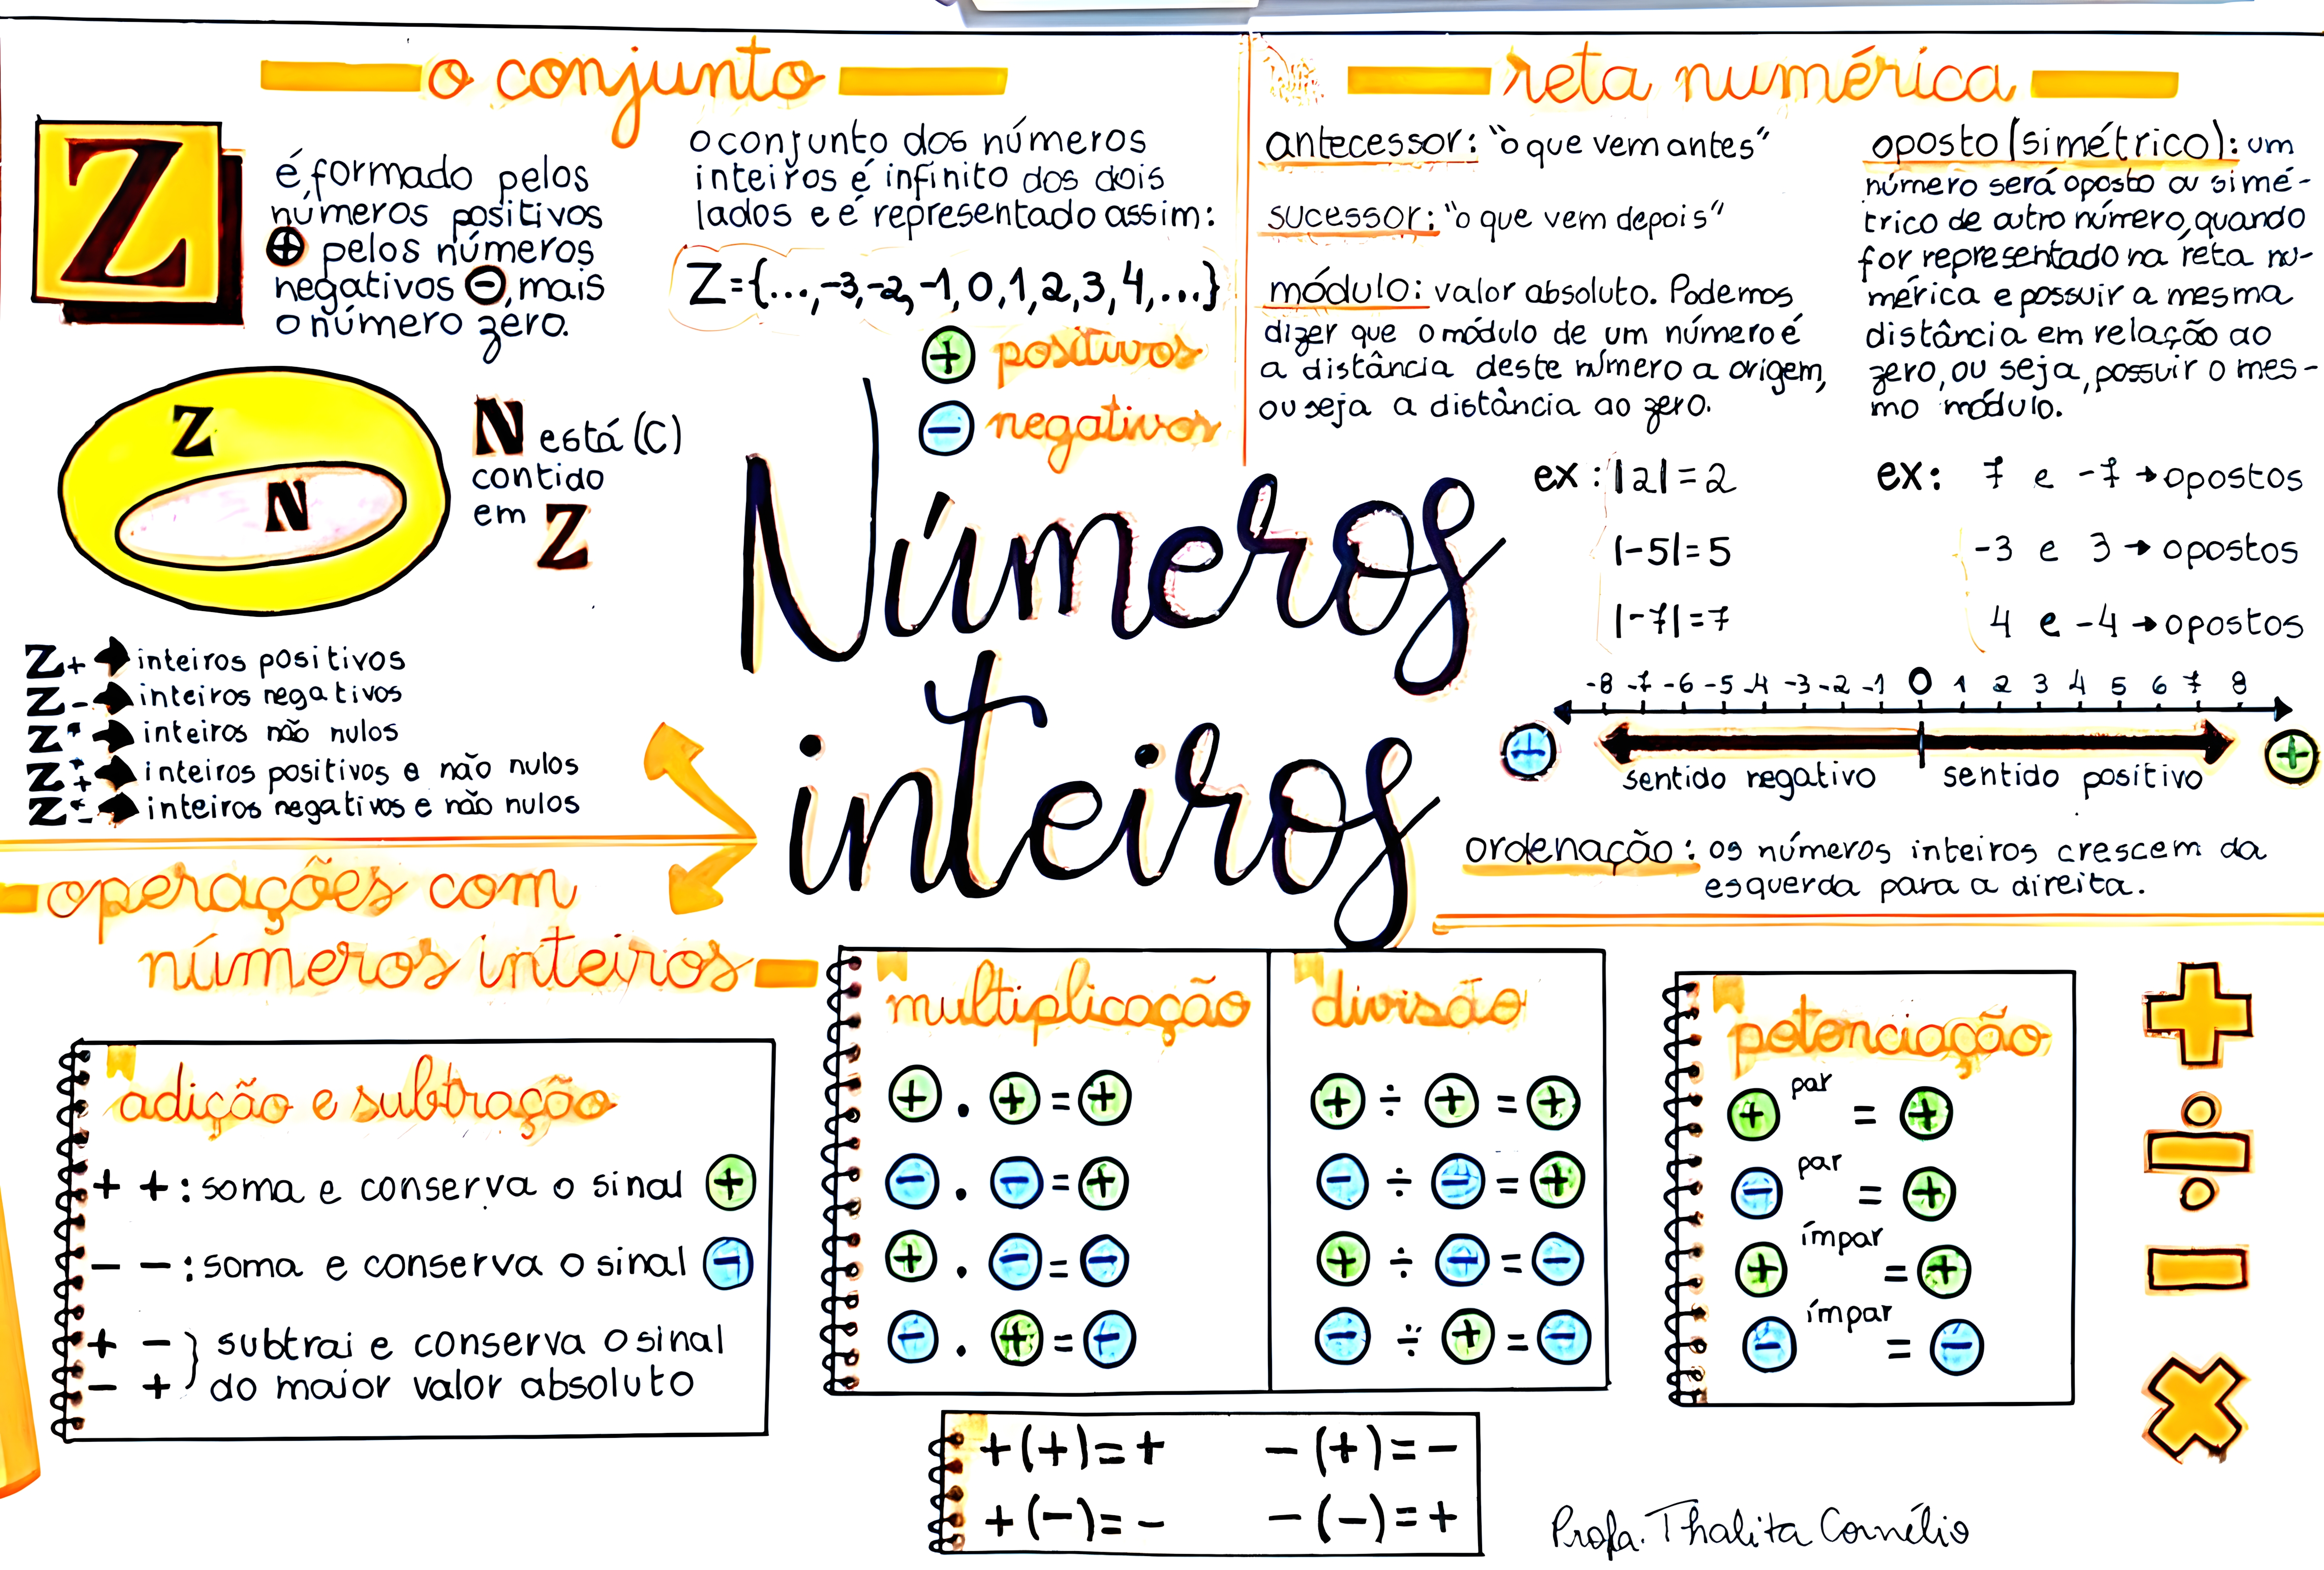 o conjunto
Z
é formado pelos
números positivos
⊕ pelos números
negativos ⊖, mais
o número zero.
o conjunto dos números
inteiros é infinito dos dois
lados e é representado assim:
Z={...,-3,-2,-1,0,1,2,3,4,...}
+ positivos
- negativos
Z
N
N está (C)
contido
em Z
Z+ → inteiros positivos
Z- → inteiros negativos
Z* → inteiros não nulos
Z*+ → inteiros positivos e não nulos
Z*- → inteiros negativos e não nulos
Números
inteiros
reta numérica
antecessor: "o que vem antes"
sucessor: "o que vem depois"
módulo: valor absoluto. Podemos
dizer que o módulo de um número é
a distância deste número a origem,
ou seja a distância ao zero.
ex: |2|=2
|-5|=5
|-7|=7
oposto (simétrico): um
número será oposto ou simé-
trico de outro número, quando
for representado na reta nu-
mérica e possuir a mesma
distância em relação ao
zero, ou seja, possuir o mes-
mo módulo.
ex: 7 e -7 → opostos
-3 e 3 → opostos
4 e -4 → opostos
-8 -7 -6 -5 -4 -3 -2 -1 0 1 2 3 4 5 6 7 8
- +
sentido negativo sentido positivo
ordenação: os números inteiros crescem da
esquerda para a direita.
operações com
números inteiros
adição e subtração
+ +: soma e conserva o sinal +
- -: soma e conserva o sinal -
+ - } subtrai e conserva o sinal
- + } do maior valor absoluto
multiplicação
+ . + = +
- . - = +
+ . - = -
- . + = -
divisão
+ ÷ + = +
- ÷ - = +
+ ÷ - = -
- ÷ + = -
potenciação
+ par = +
- par = +
+ ímpar = +
- ímpar = -
+
÷
-
×
+(+)=+ -(+)=-
+(-)=- -(-)=+
Profa. Thalita Cornélio